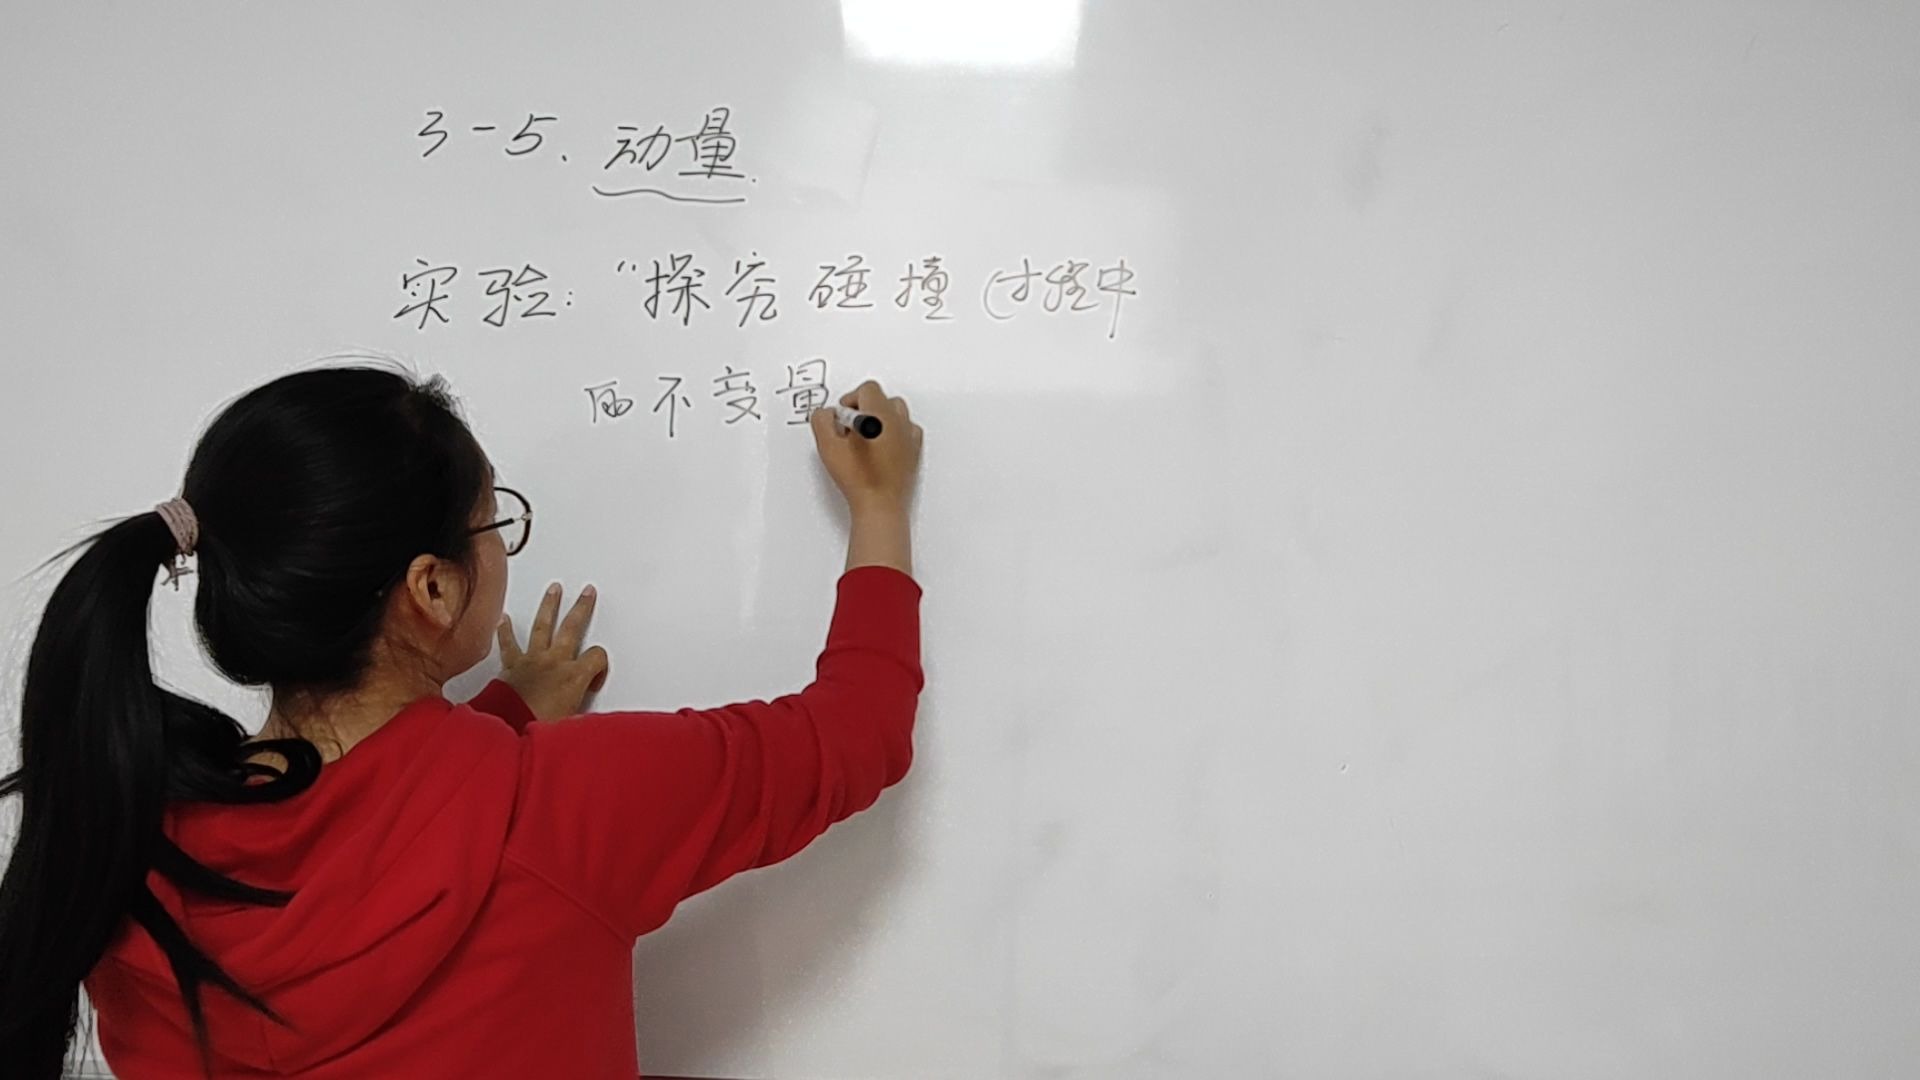 3-5、动量.
实验:“探究碰撞过程中
的不变量